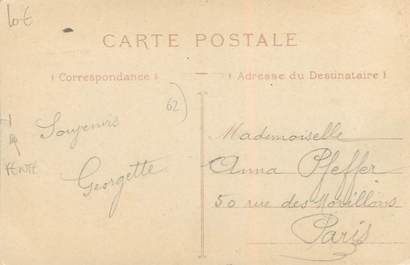 10€
CARTE POSTALE
( Correspondance )
( Adresse du Destinataire )
62)
Souvenirs
Georgette
Mademoiselle
Anna Pfeffer
50 rue des Morillons
Paris